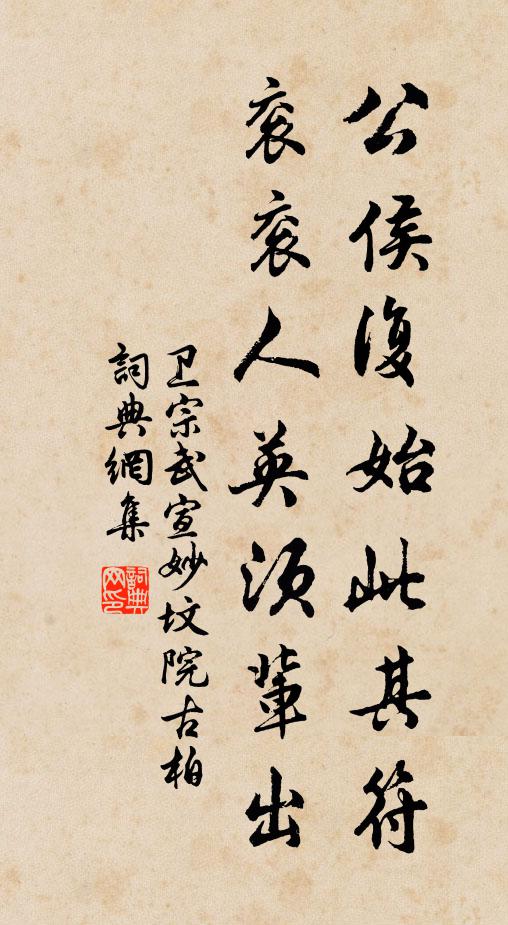 公侯復始此其符
衮衮人英須輩出
卫宗武宣妙坟院古柏
詞典網集
詞典网印